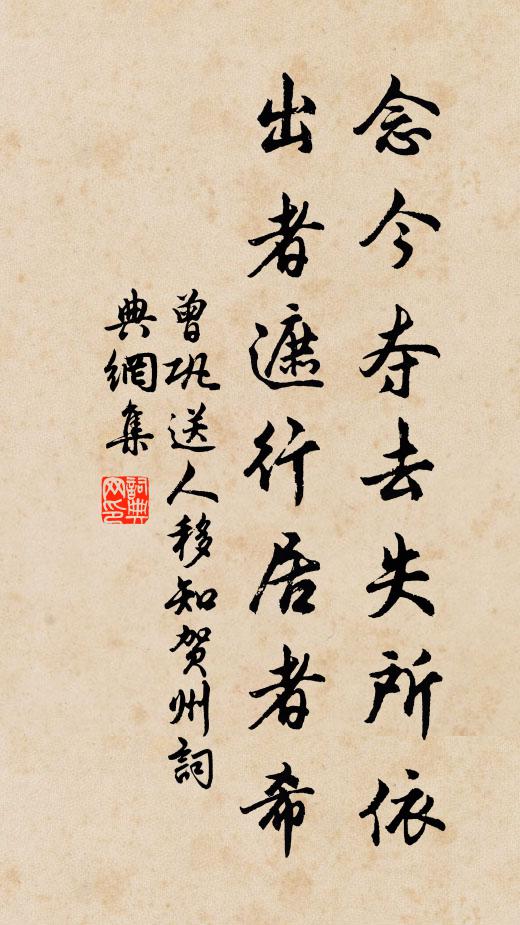 念今夺去失所依
出者遮行居者希
曾巩送人移知贺州詞
典網集
詞典
网印